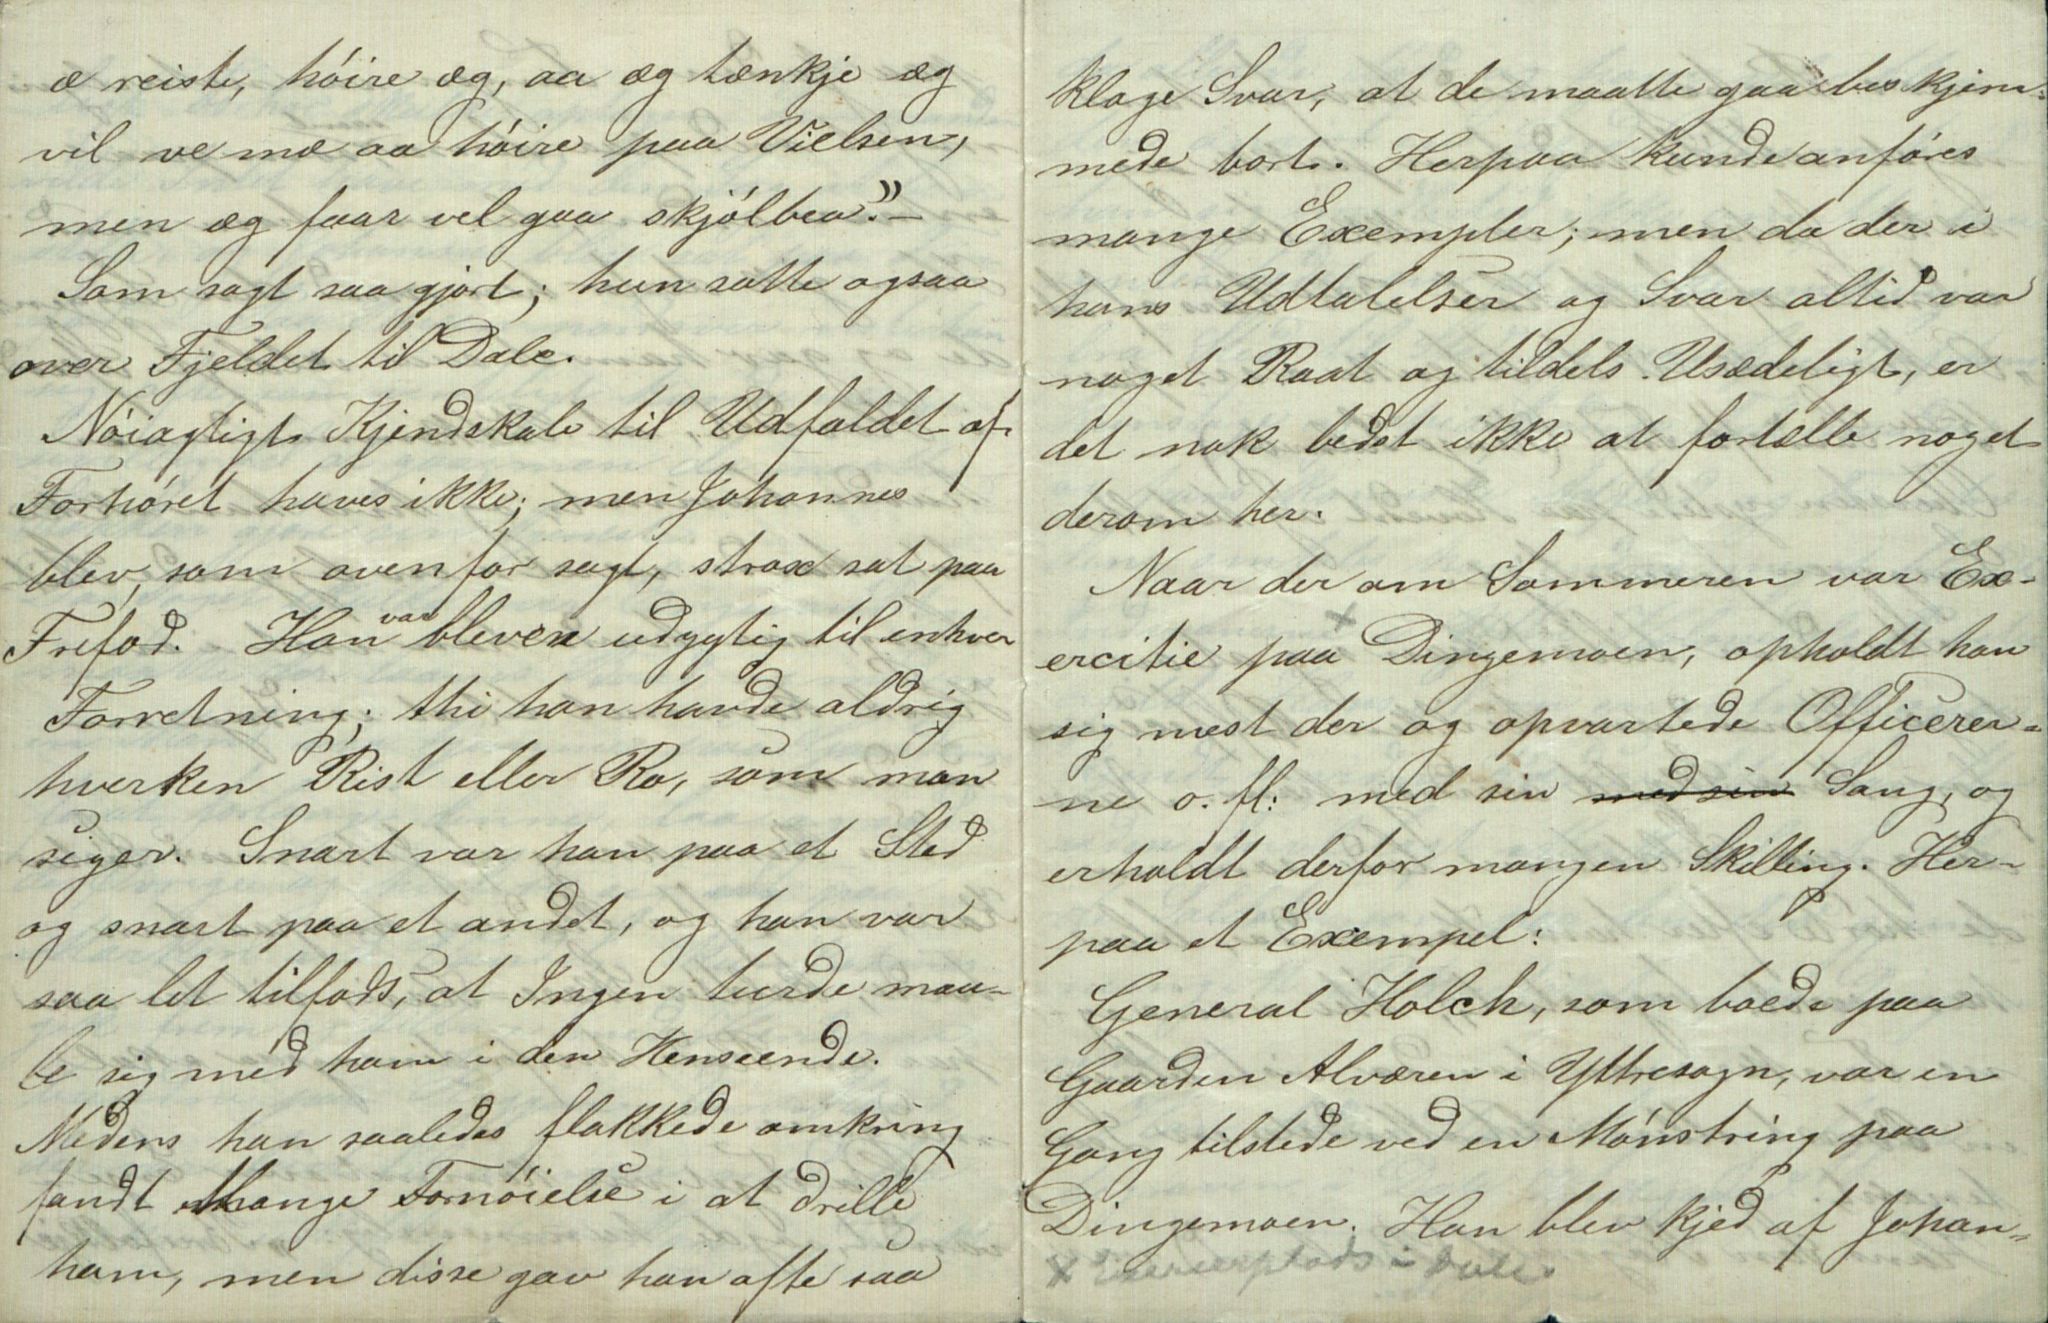 æ reiste, hóire æg, aa æg tænkje æg
vil ve mæ aa hóire paa Vielsen,
men æg faar vel gaa skjólbea."–
Som sagt saa gjort; hun satte ogsaa
over Fjeldet til Dale.
Nóiagtigt Kjendskab til Udfaldet af
Forhóret haves ikke; men Johannes
blev, som ovenfor sagt, strax sat paa
Frifod. Han var bleven udygtig til enhver
Forretning; thi han havde aldrig
hverken Rist eller Ro, som man
siger. Snart var han paa et Sted
og snart paa et andet, og han var
saa let tilfods, at Ingen turde maa-
le sig med ham i den Henseende.
Medens han saaledes flakkede omkring
fandt Mange Fornóielse i at drille
ham, men disse gav han ofte saa
kloge Svar, at de maatte gaa beskjem-
mede bort. Herpaa kunde anfóres
mange Exempler; men da der i
hans Udtalelser og Svar altid var
noget Raat og tildels Usædeligt, er
det nok bedst ikke at fortælle noget
derom her.
Naar der om Sommeren var Ex-
ercitie paa x Dingemoen, opholdt han
sig mest der og opvartede Officerer-
ne o. fl: med sin med sin Sang, og
erholdt derfor mangen Skilling. Her-
paa et Exempel:
General Holck, som boede paa
Gaarden Alværen i Yttresogn, var en
Gang tilstede ved en Mónstring paa
Dingemoen. Han blev kjed af Johan-
x Exerceerplads i Dale.